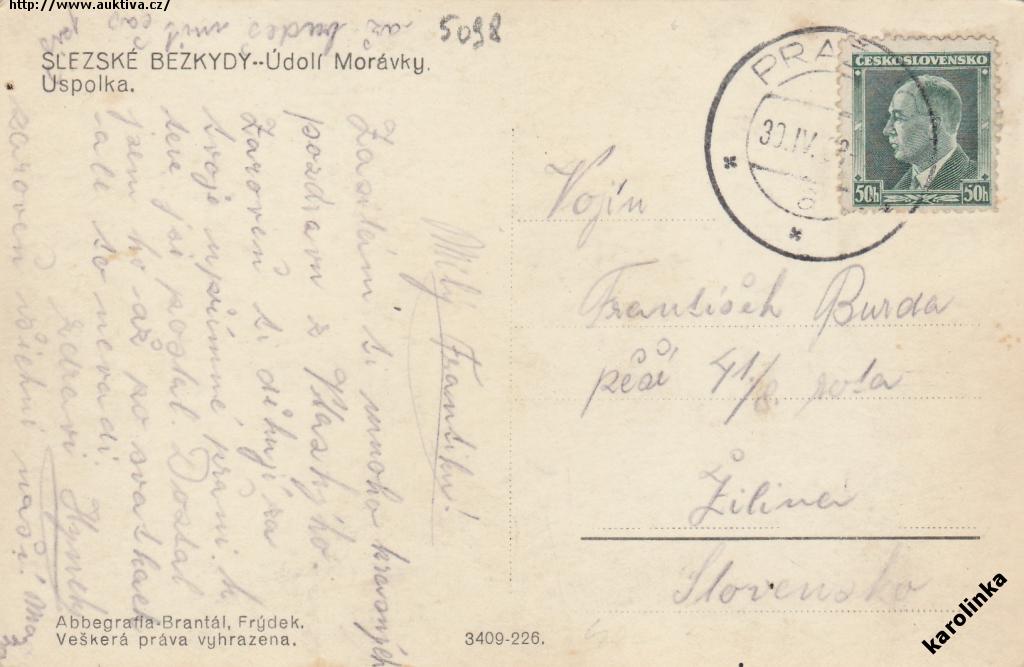 http://www.auktiva.cz/
5098
až budeš mít
SLEZSKÉ BEZKYDY--Údolí Morávky.
Uspolka.
Milý Frantíku!
Zasílám ti mnoho krásných
pozdravů z
Zároveň ti děkuji za
tvoje upřímné přání. k
jsi poslal. Dostal
jsem ho až po svátkách
ale to nevadí.
zdraví Hynek
zároveň všichni naší.
PRA
30.IV.
ČESKOSLOVENSKO
50h 50h
Vojín
Františeh Burda
pěší 41/8. rota
Žilina
Slovensko
Abbegrafia-Brantál, Frýdek.
Veškerá práva vyhrazena.
3409-226.
karolinka